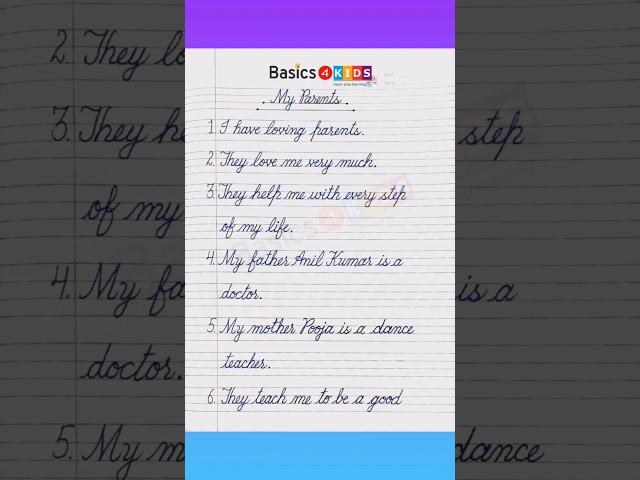 Basics 4 KIDS
. My Parents .
1. I have loving parents.
2. They love me very much.
3. They help me with every step
of my life.
4. My father Anil Kumar is a
doctor.
5. My mother Pooja is a dance
teacher.
6. They teach me to be a good